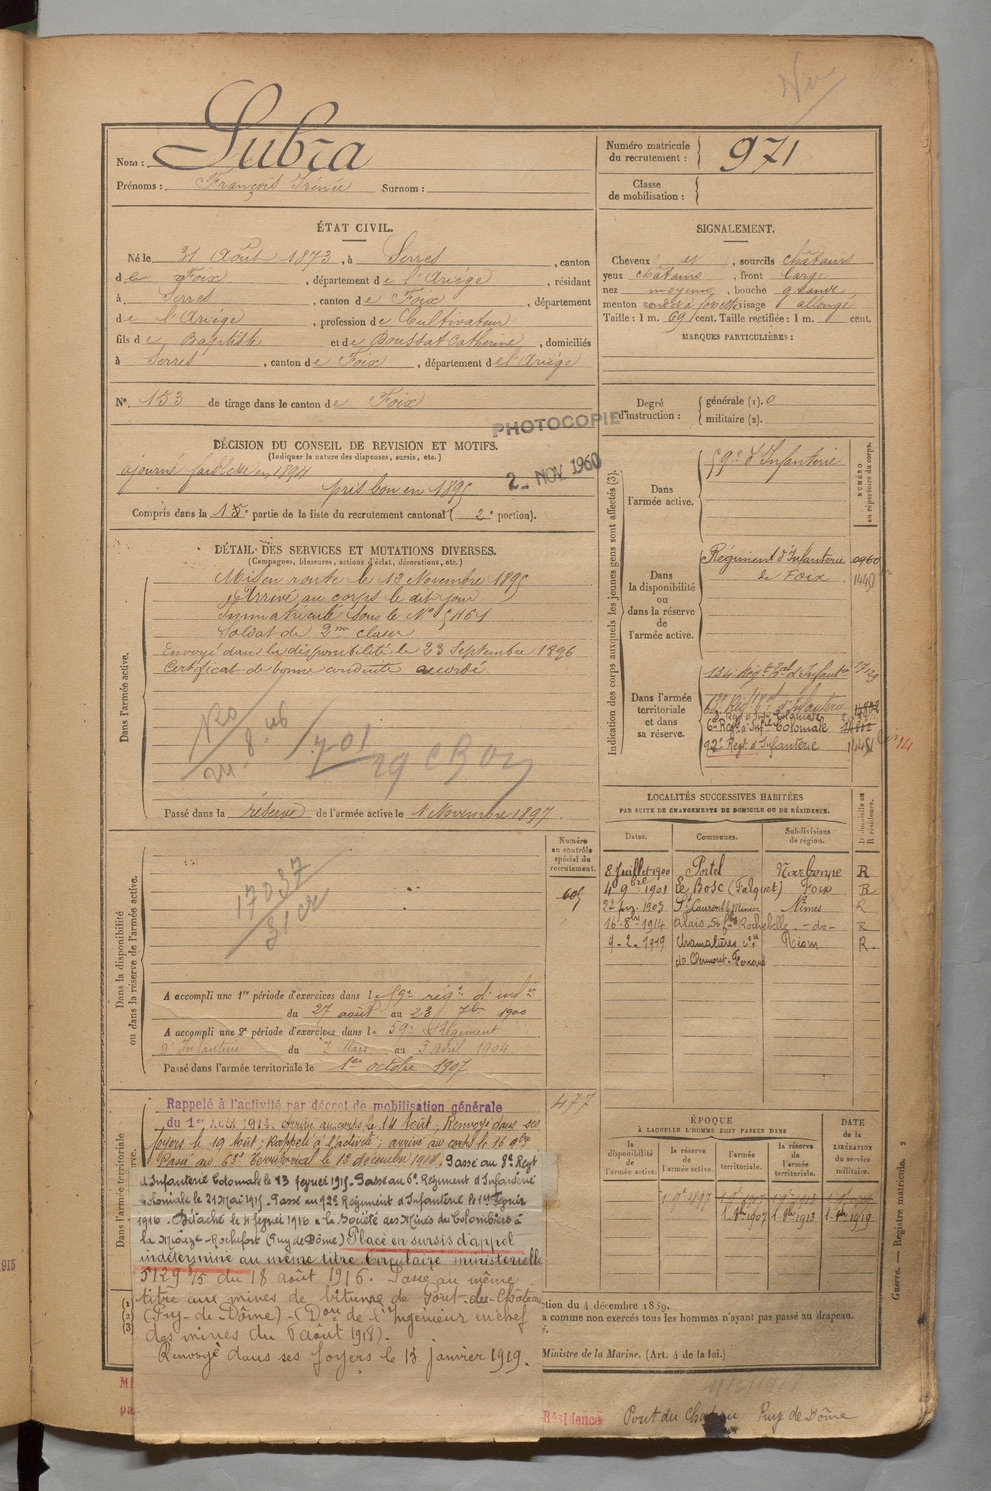 Nom : Lubra
Prénoms : François Irénée Surnom :
Numéro matricule du recrutement : 971
Classe de mobilisation :
ÉTAT CIVIL.
Né le 31 Août 1873, à Serres, canton
de Foix, département de l'Ariège, résidant
à Serres, canton de Foix, département
de l'Ariège, profession de Cultivateur
fils de Baptiste et de Boussat Catherine, domiciliés
à Serres, canton de Foix, département de l'Ariège
N° 153 de tirage dans le canton de Foix
SIGNALEMENT.
Cheveux et sourcils châtains
yeux châtains, front large
nez moyen, bouche grande
menton rond à fossette visage allongé
Taille : 1 m. 69 cent. Taille rectifiée : 1 m. cent.
MARQUES PARTICULIÈRES :
Degré d'instruction : générale (1). 0
militaire (2).
PHOTOCOPIE
2 - NOV. 1960
DÉCISION DU CONSEIL DE REVISION ET MOTIFS.
(Indiquer la nature des dispenses, sursis, etc.)
ajourné faiblesse en 1894
pris bon en 1895
Compris dans la partie de la liste du recrutement cantonal ( 2e portion).
DÉTAIL DES SERVICES ET MUTATIONS DIVERSES.
(Campagnes, blessures, actions d'éclat, décorations, etc.)
Dans l'armée active.
Mis en route le 13 Novembre 1895
Arrivé au corps le dit jour
Immatriculé sous le N° 5161
Soldat de 2me classe
Envoyé dans la disponibilité le 23 Septembre 1896
Certificat de bonne conduite accordé
Passé dans la réserve de l'armée active le 1 Novembre 1897
Indication des corps auxquels les jeunes gens sont affectés (3).
NUMÉRO au répertoire du corps.
Dans l'armée active.
59e d'Infanterie
Dans la disponibilité ou dans la réserve de l'armée active.
Régiment d'Infanterie 0960
de Foix 1440
Dans l'armée territoriale et dans sa réserve.
134 Régt d'Infanterie
6e Régt d'Infie Coloniale
92e Regt d'Infanterie
LOCALITÉS SUCCESSIVES HABITÉES
PAR SUITE DE CHANGEMENTS DE DOMICILE OU DE RÉSIDENCE.
Dates. Communes. Subdivisions de région. D domicile ou R résidence.
8 Juillet 1900 Portel Narbonne R
4 9bre 1901 Le Bosc (Falquet) Foix R
St Laurent le Minier Nîmes R
16-8bre 1914 Alais Rochebelle -do- R
9-2-1919 Riom R.
de Clermont-Ferrand
Numéro au contrôle spécial du recrutement.
605
Dans la disponibilité ou dans la réserve de l'armée active.
17037
A accompli une 1re période d'exercices dans le 59e rég. d'inf.
du 27 août au 23 7bre 1900
A accompli une 2e période d'exercices dans le 59e Régiment
d'Infanterie du 7 Mars au 3 Avril 1904
Passé dans l'armée territoriale le 1er octobre 1907
477
Dans l'armée territoriale
Rappelé à l'activité par décret de mobilisation générale
du 1er Août 1914. Arrivé au corps le 14 Août, Renvoyé dans ses
foyers le 19 Août; Rappelé à l'activité; arrivé au corps le 16 9bre
Passé au 63e Territorial le 13 décembre 1914. Passé au 8e Regt
d'Infanterie Coloniale le 23 février 1915. Passé au 6e Régiment d'Infanterie
coloniale le 21 Mai 1915. Passé au 92e Régiment d'Infanterie le 1er février
1916. Détaché le 4 février 1916 à la Société des Mines du Colombiers à
la Miouze-Rochefort (Puy de Dôme) Placé en sursis d'appel
indéterminé au même titre Circulaire ministerielle
5129 3/5 du 18 août 1916. Passe au même
titre aux mines de bitume de Pont-du-Château
(Puy-de-Dôme). (Don de l'Ingénieur en chef
des mines du 6 août 1918).
Renvoyé dans ses foyers le 13 janvier 1919.
ÉPOQUE
À LAQUELLE L'HOMME DOIT PASSER DANS
la disponibilité de l'armée active. la réserve de l'armée active. l'armée territoriale. la réserve de l'armée territoriale.
DATE de la LIBÉRATION du service militaire.
1 9bre 1897
1. 8bre 1907 1. 8bre 1913 1. 8bre 1919
Guerre. — Registre matricule. 2
ction du 4 décembre 1889.
a comme non exercés tous les hommes n'ayant pas passé au drapeau.
Ministre de la Marine. (Art. 4 de la loi.)
Résidence Pont du Chateau Puy de Dôme